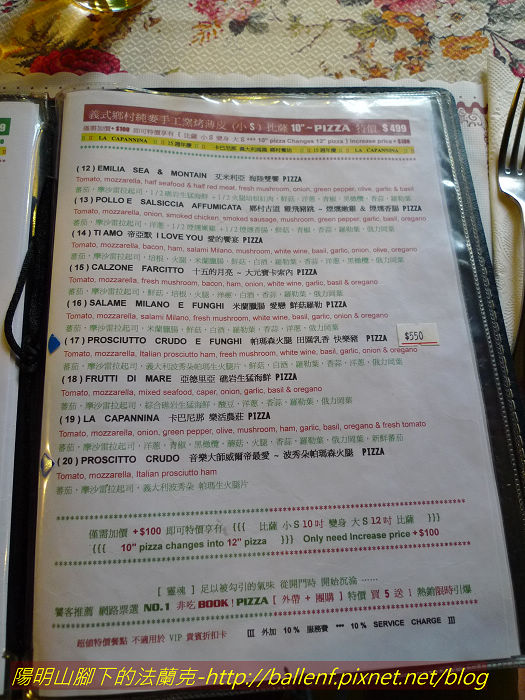 義式鄉村純麥手工窯烤薄皮 (小 S) 比薩 10"~PIZZA 特價 $499
僅需加價+$100 即可特價享有 { 比薩 小 S 變身 大 S } 10" pizza Changes 12" pizza } Increase price +$100
LA CAPANNINA 15 週年慶 卡巴尼那 義大利窯烤 鄉村餐坊 15 週年慶 LA CAPANNINA
(12) EMILIA SEA & MONTAIN 艾米利亞 海陸雙饗 PIZZA
Tomato, mozzarella, half seafood & half red meat, fresh mushroom, onion, green pepper, olive, garlic & basil
(13) POLLO E SALSICCIA AFFUMICATA
Tomato, mozzarella, onion, smoked chicken, smoked sausage, mushroom, green pepper, garlic, basil, oregano
(14) TI AMO 帝亞默 I LOVE YOU 愛的饗宴 PIZZA
Tomato, mozzarella, bacon, ham, salami milano, mushroom, white wine, basil, garlic, onion, olive, oregano
(15) CALZONE FARCITTO 十五的月亮 ~ 大元寶卡索內 PIZZA
Tomato, mozzarella, fresh mushroom, bacon, ham, onion, white wine, garlic, basil & oregano
蕃茄，摩沙雷拉起司，鮮菇，培根，火腿，洋蔥，白酒，香蒜，羅勒葉，俄力岡葉
(16) SALAME MILANO E FUNGHI 米蘭臘腸 愛戀 鮮菇羅勒 PIZZA
Tomato, mozzarella, salami Milano, fresh mushroom, white wine, basil, garlic, onion & oregano
蕃茄，摩沙雷拉起司，米蘭臘腸，鮮菇，白酒，香蒜，羅勒葉，洋蔥，俄力岡葉
(17) PROSCIUTTO CRUDO E FUNGHI 帕瑪森火腿 田園乳香 快樂豬 PIZZA
$550
Tomato, mozzarella, Italian prosciutto ham, fresh mushroom, white wine, basil, garlic, onion & oregano
蕃茄，摩沙雷拉起司，義大利波秀朵帕瑪生火腿片，鮮菇，白酒，羅勒葉，香蒜，洋蔥，俄力岡葉
(18) FRUTTI DI MARE 亞德里亞 礁岩生猛海鮮 PIZZA
Tomato, mozzarella, mixed seafood, caper, onion, garlic, basil & oregano
蕃茄，摩沙雷拉起司，綜合礁岩生猛海鮮，酸豆，洋蔥，香蒜，羅勒葉，俄力岡葉
(19) LA CAPANNINA 卡巴尼那 樂活農莊 PIZZA
Tomato, mozzarella, onion, green pepper, olive, mushroom, ham, garlic, basil, oregano & fresh tomato
蕃茄，摩沙雷拉起司，洋蔥，青椒，黑橄欖，蘑菇，火腿，香蒜，羅勒葉，俄力岡葉，新鮮蕃茄
(20) PROSCITTO CRUDO 音樂大師威爾帝最愛 ~ 波秀朵帕瑪森火腿 PIZZA
Tomato, mozzarella, Italian prosciutto ham
蕃茄，摩沙雷拉起司，義大利波秀朵 帕瑪生火腿片
僅需加價 +$100 即可特價享有 {{{ 比薩 小 S 10 吋 變身 大 S 12 吋 比薩 }}}
{{{ 10" pizza changes into 12" pizza }}} Only need Increase price +$100
[ 靈魂 ] 足以被勾引的氣味 從開門時 開始沉淪 ……
饕客推薦 網路票選 NO.1 非吃 BOOK ! PIZZA [ 外帶 + 團購 ] 特價 買 5 送 1 熱銷限時引爆
超值特價餐點 不適用於 VIP 貴賓折扣卡 外加 10% 服務費 *** 10% SERVICE CHARGE
陽明山腳下的法蘭克-http://ballenf.pixnet.net/blog